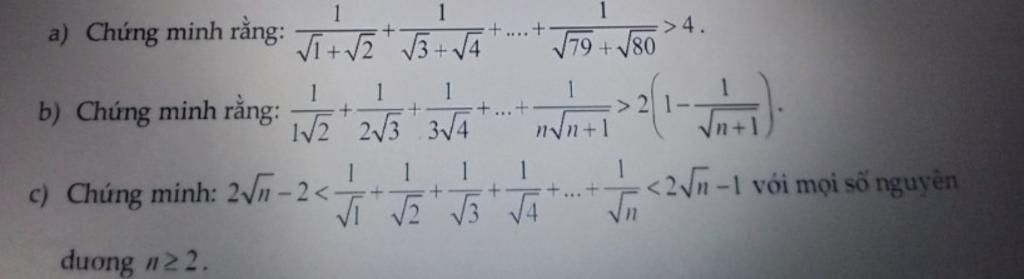 a) Chứng minh rằng: $\frac{1}{\sqrt{1}+\sqrt{2}}+\frac{1}{\sqrt{3}+\sqrt{4}}+....+\frac{1}{\sqrt{79}+\sqrt{80}}>4$ .
b) Chứng minh rằng: $\frac{1}{1\sqrt{2}}+\frac{1}{2\sqrt{3}}+\frac{1}{3\sqrt{4}}+...+\frac{1}{n\sqrt{n+1}}>2\left(1-\frac{1}{\sqrt{n+1}}\right)$.
c) Chứng minh: $2\sqrt{n}-2<\frac{1}{\sqrt{1}}+\frac{1}{\sqrt{2}}+\frac{1}{\sqrt{3}}+\frac{1}{\sqrt{4}}+...+\frac{1}{\sqrt{n}}<2\sqrt{n}-1$ với mọi số nguyên
dương $n\geq 2$.